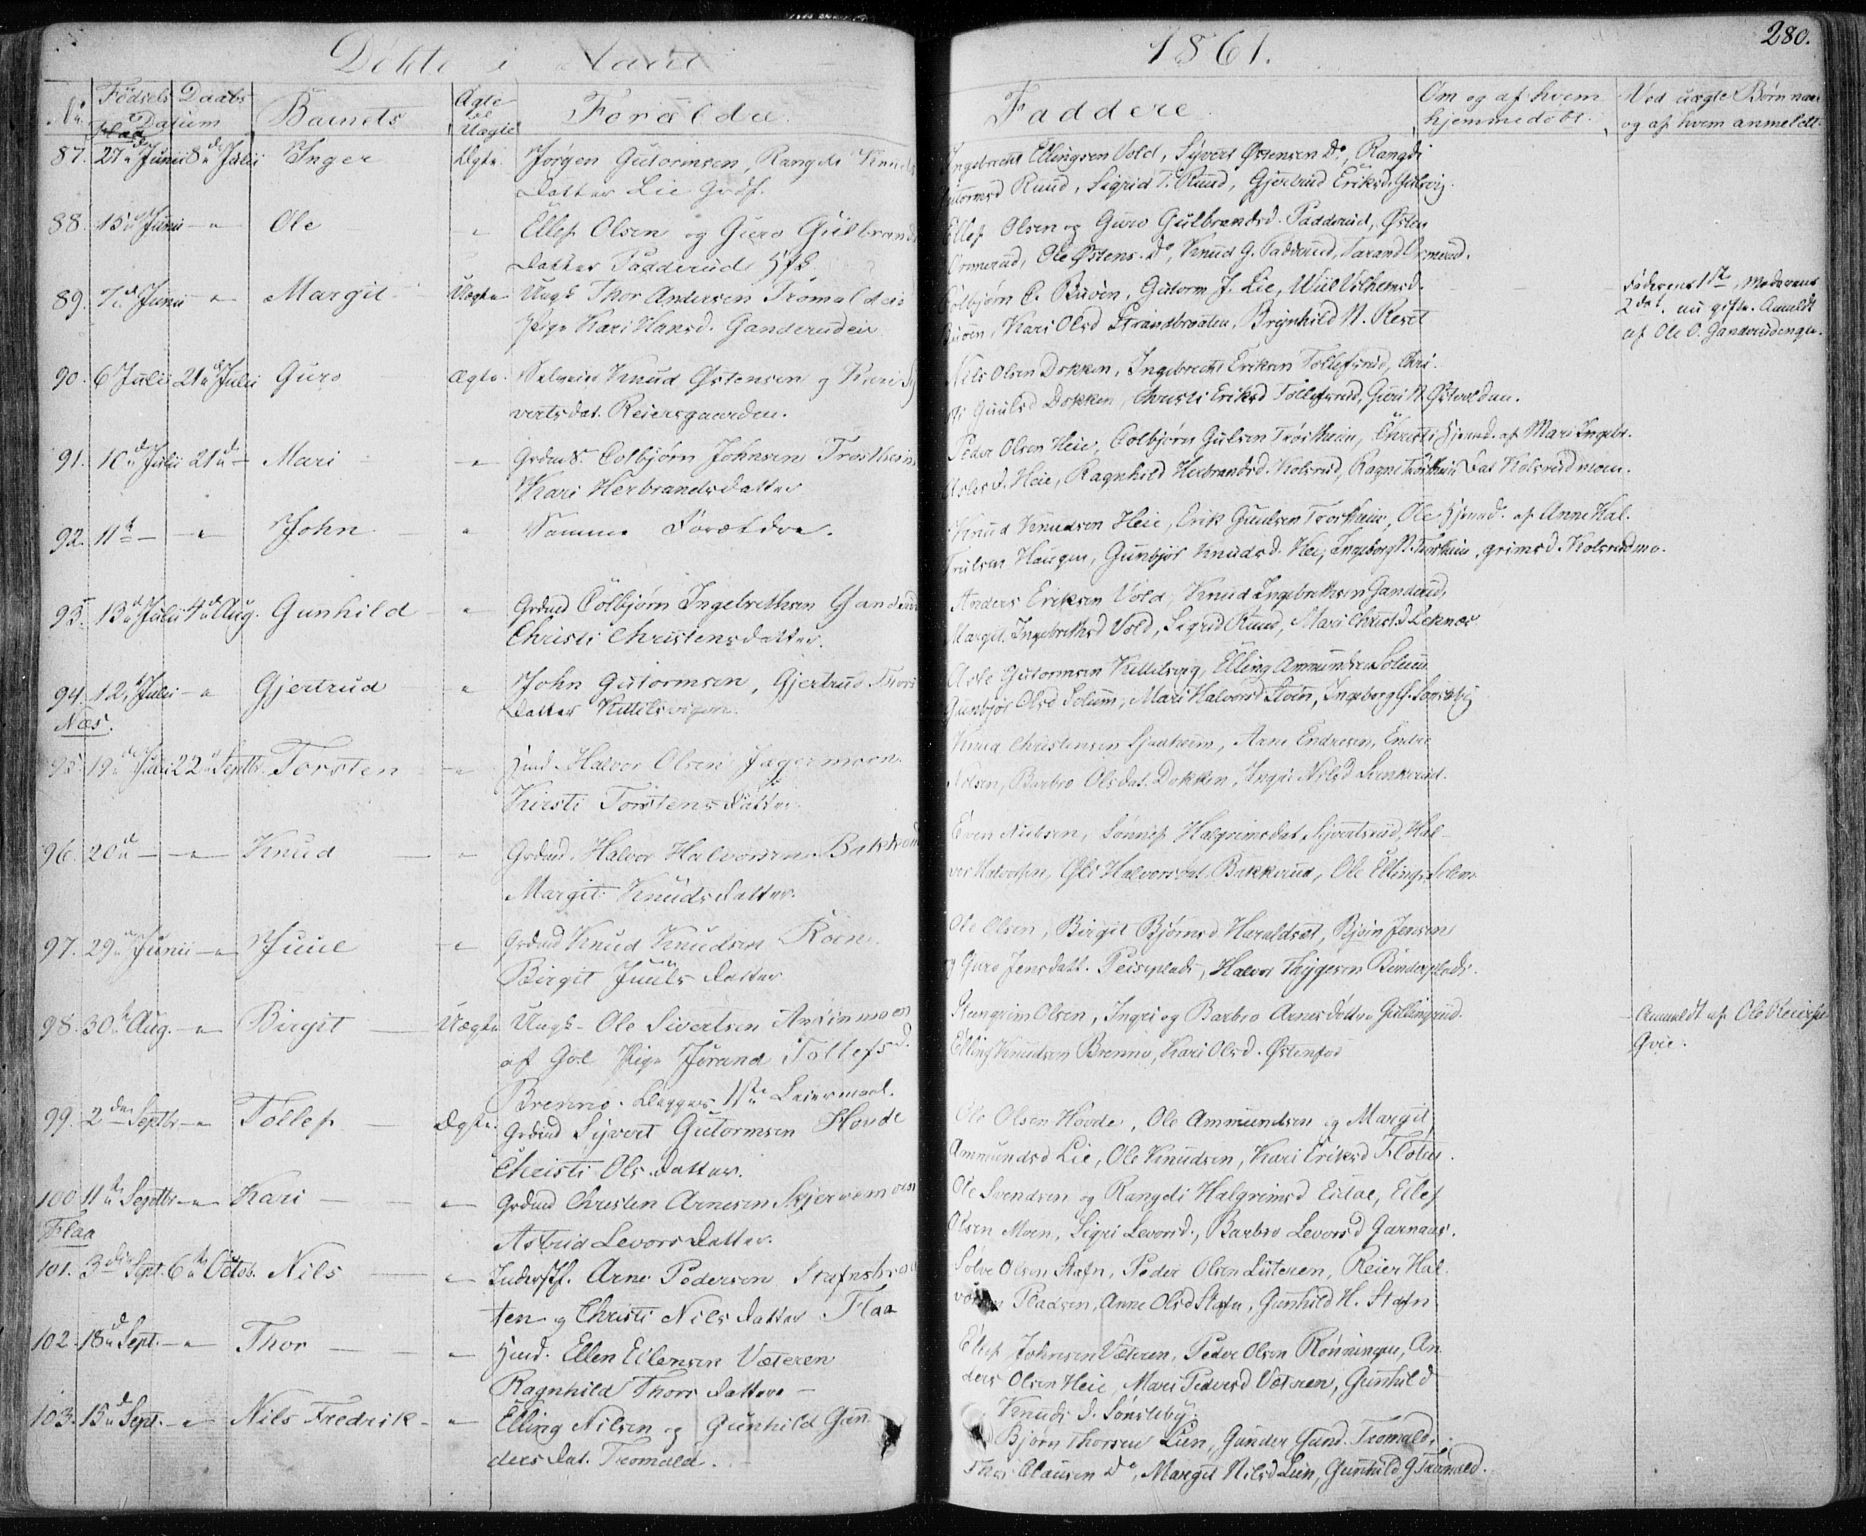 Døbte i Aaret 1861. 280.
No. Fødsels Daabs Datum Barnets Ægte el Uægte Forældre Faddere Om og af hvem hjemmedøbt. Ved uægte Børn naar og af hvem anmeldt.
Flaa
87. 27de Junii 8de Julii Inger Ægte. Jørgen Gutormsen, Rangdi Knuds
Datter Lie Grdf.
Ingebrecht Ellingsen Vold, Syvert Østensen Do, Rangdi
Gutormsd Ruud, Sigrid T. Ruud, Gjertrud Eriksd. Gulsvig.
88. 15de Junii - " - Ole " Ellef Olsen og Guro Gulbrands
Datter Padderud Hfk.
Ellef Olsen og Guro Gulbrandsd. Padderud, Østen
Ormerud, Ole Østens. Do, Knud G. Padderud, Jarand Ormerud.
89. 7de Junii - " - Margit Uægte Ungk. Thor Andersen Tromaldeie
Pige Kari Hansd. Ganderudeie
Colbjørn C. Buøen, Gutorm J. Lie, Wiel Vilhemsd.
Buøen, Kari Olsd Strandbraaten, Brynhild N. Reset
Faderens 1ste, Moderens
2det. nu gifte. Anmeldt
af Ole O. Ganderudengen.
90. 6 Julii 21de Julii Guro Ægte. Selveier Knud Østensen og Kari Sy
vertsdat. Reiersgaarden.
Nils Olsen Dokken, Ingebrecht Eriksen Tollefsrud, Chri-
sti Guulsd Dokken, Christi Eriksd Tollefsrud, Guri N. Østvoldun.
91. 10de Julii 21de - Mari - " Grdmd. Colbjørn Johnsen Trostheim
Kari Herbrandsdatter
Peder Olsen Heie, Colbjørn Gulsen Trostheim, Christi Hjemd. af Mari Ingebr.
Asles d. Heie, Ragnhild Herbrandsd. Kolsrud, Ragne Trostheim Dat Kolsrudmoen.
92. 11te - - " - John - " Samme Forældre.
Knud Knudsen Heie, Erik Guulsen Trostheim, Ole Hjemd. af Anne Hal.
Trulsen Haugen, Gunbjør Knudsd. Hei, Ingeborg N. Trostheim, grimsd. Kolsrudmo.
93. 13de Julii 4de Aug. Gunhild - " Grdmd Colbjørn Ingebrethsen Ganderud
Christi Christensdatter.
Anders Eriksen Vold, Knud Ingebrethsen Ganderud,
Margit. Ingebrethsd Vold, Sigrid Ruud, Mari Christ.d Leknæs
94. 12. Julii - " Gjertrud " John Gutormsen, Gjertrud Thors
datter Kittilsvigen.
Asle Gutormsen Kittilsvig, Elling Ammundsen Solum
Gunbjør Olsd Solum, Mari Halvorsd Stoen, Ingeborg G. Sønsteby
Næs.
95 19de Julii 22de Septbr Torsten - " Hmd. Halvor Olsen Jagermoen
Kirsti Torstensdatter
Knud Christensen Sjedheim, Arne Endresen, Endre
Olsen, Barbro Olsdat. Dokken, Ingri Nilsd Svenkerud.
96. 20de - - " - Knud - " Grdmd. Halvor Halvorsen Bakkerud
Margit Knudsdatter.
Even Nielsen, Sønnif Halgrimsdat Sjvertsrud, Hal-
vor Halvorsen, Goli Halvorsdat Bakkerud, Ole Ellings.
97. 29de Junii - " Juul - " Grdmd Knud Knudsen Roen.
Birgit Juulsdatter
Ole Olsen, Birgit Bjørnsd Haraldset, Bjørn Jensen
og Guro Jensdatt. Peisplads, Halvor Thygesen Binderplads.
98. 30te Aug. - " - Birgit - Uægte Ungk. Ole Sivertsen
af Gol Pige Jørand Tollefsd.
Brenno. Begges 1ste Leiermaal.
Stengrim Olsen, Ingri og Barbro Arnesdøttre Gullingsrud.
Elling Knudsen Brenno, Kari Olsd. Østenfor
Anmeldt af Ole
Gvie.
99. 2den Septbr - " Tollef - Ægte. Grdmd Syvert Gutormsen Hovde
Christi Olsdatter.
Ole Olsen Hovde, Ole Ammundsen og Margit
Ammundsd Lie, Ole Knudsen, Kari Eriksd Floten.
100 11te Septbr - " - Kari - " Grdmd Christen Arnesen Skjervemoen
Astrid Levorsdatter.
Ole Svendsen og Rangdi Halgrimsd Eidal, Ellef
Olsen Moen, Sigri Levorsd., Barbro Levorsd Garnaas.
Flaa
101. 3die Sept. 6te Octob. Nils - " Inderst. Arne Pedersen Stafnsbraa
ten og Christi Nilsdatter Flaa
Sølve Olsen Stafn, Peder Olsen Luteren, Reier Hal-
vorsen Pladsen, Anne Olsd Stafn, Gunhild H. Stafn
102. 18de Sept. - " - Thor - " Hmd. Ellen Ellensen Væteren
Ragnhild Thorsdatter -
Ellef Johnsen Væteren, Peder Olsen Rønningen, An-
ders Olsen Heie, Mari Pedersd Væteren, Gunhild
Knuds d. Sønsteby.
103. 15de Sept. - " Nils Fredrik - " Elling Nilsen og Gunhild Gun-
dersdat. Tromald.
Bjørn Thorsen Lien, Gunder Gund. Tromald,
Thor Clausen Do, Margit Nilsd Lien, Gunhild G Tromald.